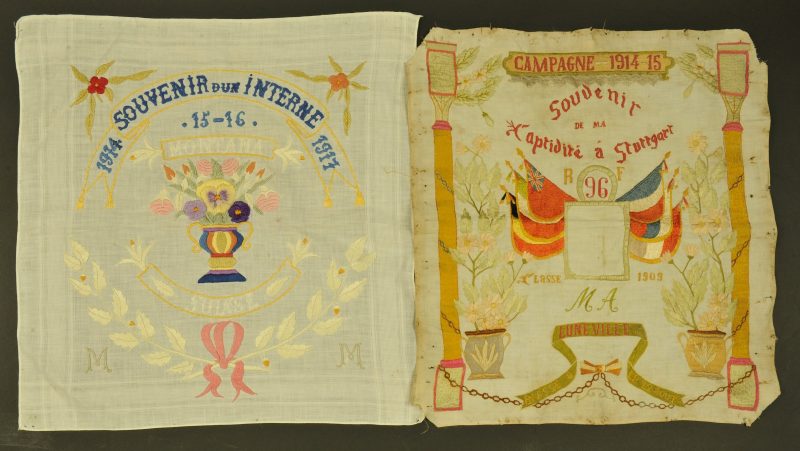 SOUVENIR D'UN INTERNE
1914 . 15-16 . 1917
MONTANA
SUISSE
M M
CAMPAGNE 1914 15
Souvenir
DE MA
Captivité á Stuttgart
R F
96
Classe 1909
MA
LUNEVILLE